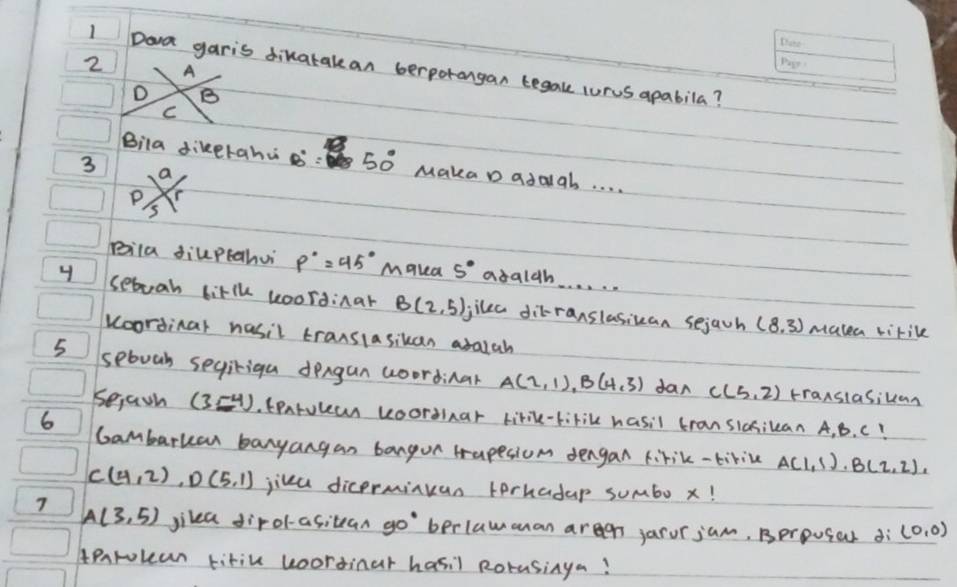 Date:
Page:
1 Dova garis dikatakan berpotongan tegak lurus apabila?
2 A
D B
C
Bila diketahui B° = 50° maka D adalah ....
3 a
P r
S
Bila dikptahui P° = 95° maka S° adalah ......
4 sebuah titik koordinat B(2,5) jika ditranslasikan sejauh (8,3) maka titik
koordinat hasil translasikan adalah
5 sebuah segitiga dengan koordinat A(2,1), B(4,3) dan C(5,2) translasikan
sejauh (3,-4). tentukan koordinat titik-titik hasil translasikan A,B,C!
6 Gambarkan banyangan bangun trapesium dengan titik-titik A(1,1), B(2,2),
C(4,2), D(5,1) jika dicerminkan terhadap sumbu x!
7 A(3,5) jika dirotasikan 90° berlawanan arah jarur jam. Berpusat di (0,0)
tentukan titik koordinat hasil Rotasinya!